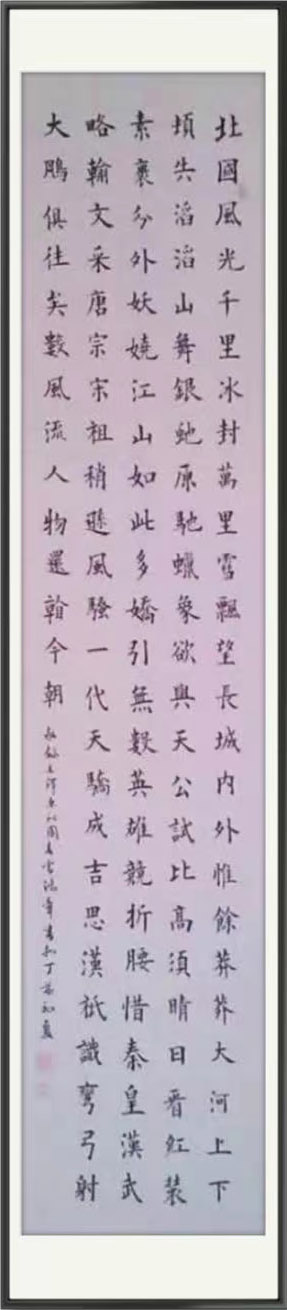 北國風光千里冰封萬里雪飄望長城内外惟餘莽莽大河上下
頃失滔滔山舞銀虵原馳蠟象欲與天公試比高須晴日看紅裝
素裹分外妖嬈江山如此多嬌引無數英雄競折腰惜秦皇漢武
略翰文采唐宗宋祖稍遜風騷一代天驕成吉思漢祇識彎弓射
大鵰俱往矣數風流人物還翰今朝
敬録毛澤東沁園春雪